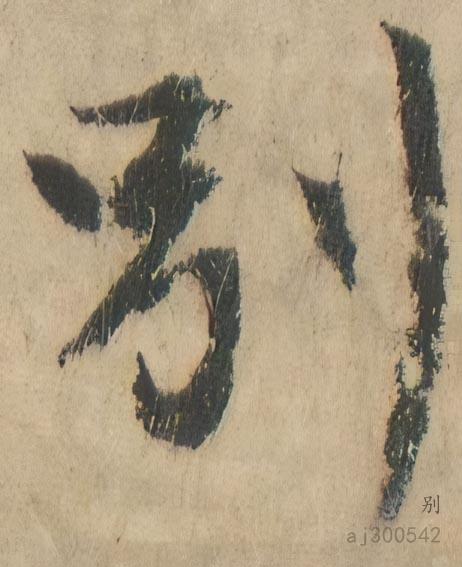 别
别
aj300542